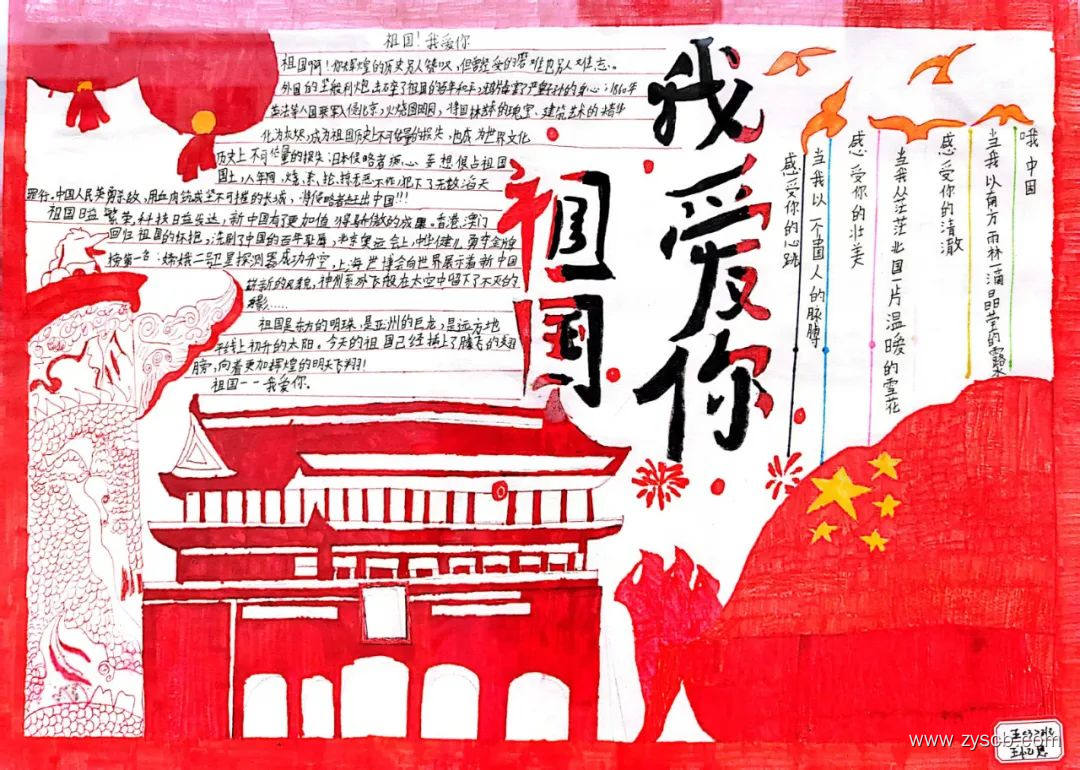 祖国！我爱你
祖国啊！你辉煌的历史另人惊叹，但曾经受的苦难也另人难忘。
外国的坚船利炮击碎了祖国的
英法等八国联军入侵北京，火烧圆明园，将园林艺术的瑰宝、建筑艺术的精华
化为灰烬，成为祖国历史上不可估量的损失，也成为世界文化
历史上不可估量的损失，日本侵略者狼心 妄想侵占祖国
国土，八年间，烧、杀、抢、掠无恶不作，犯下了无数滔天
罪行。中国人民英勇杀敌，用血肉筑成坚不可摧的长城，将侵略者赶出中国！！！
祖国日益繁荣，科技日益发达，新中国有了更加值得骄傲的成果。香港、澳门
回归祖国的怀抱，洗刷了中国的百年耻辱，北京奥运会上，中华健儿勇夺金牌
榜第一名，嫦娥二号卫星探测器成功升空，上海世博会向世界展示着新中国
崭新的风貌，神州系列飞船在太空中留下了不灭的
身影……
祖国是东方的明珠，是亚洲的巨龙，是远方地
平线上初升的太阳。今天的祖国已经插上了腾飞的翅
膀，向着更加辉煌的明天飞翔！
祖国——我爱你。
我爱你
祖国
祖国
哦 中国
当我以南方雨林一滴晶莹的露水
感受你的清澈
当我从茫茫北国一片温暖的雪花
感受你的壮美
当我以一个中国人的脉搏
感受你的心跳
www.zyscb.com